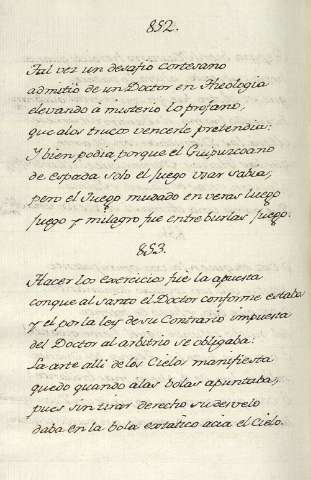 852.
Tal vez un desafio cortesano
admitio de un Doctor en Theologia
elevando à misterio lo profano,
que alos trucos vencerle pretendia:
Y bien podia, porque el Guipuzcoano
de espada solo el juego usar sabia,
pero el Juego mudado en veras luego
juego y milagro fue entre burlas fuego.
853.
Hacer los exercicios fuè la apuesta
conque al santo el Doctor conforme estaba
y el por la ley de su Contrario impuesta
del Doctor al arbitrio se obligaba:
La arte alli de los Cielos manifiesta
quedo quando à las bolas apuntaba,
pues sin tirar derecho su desvelo
daba en la bola extatico acia el Cielo.